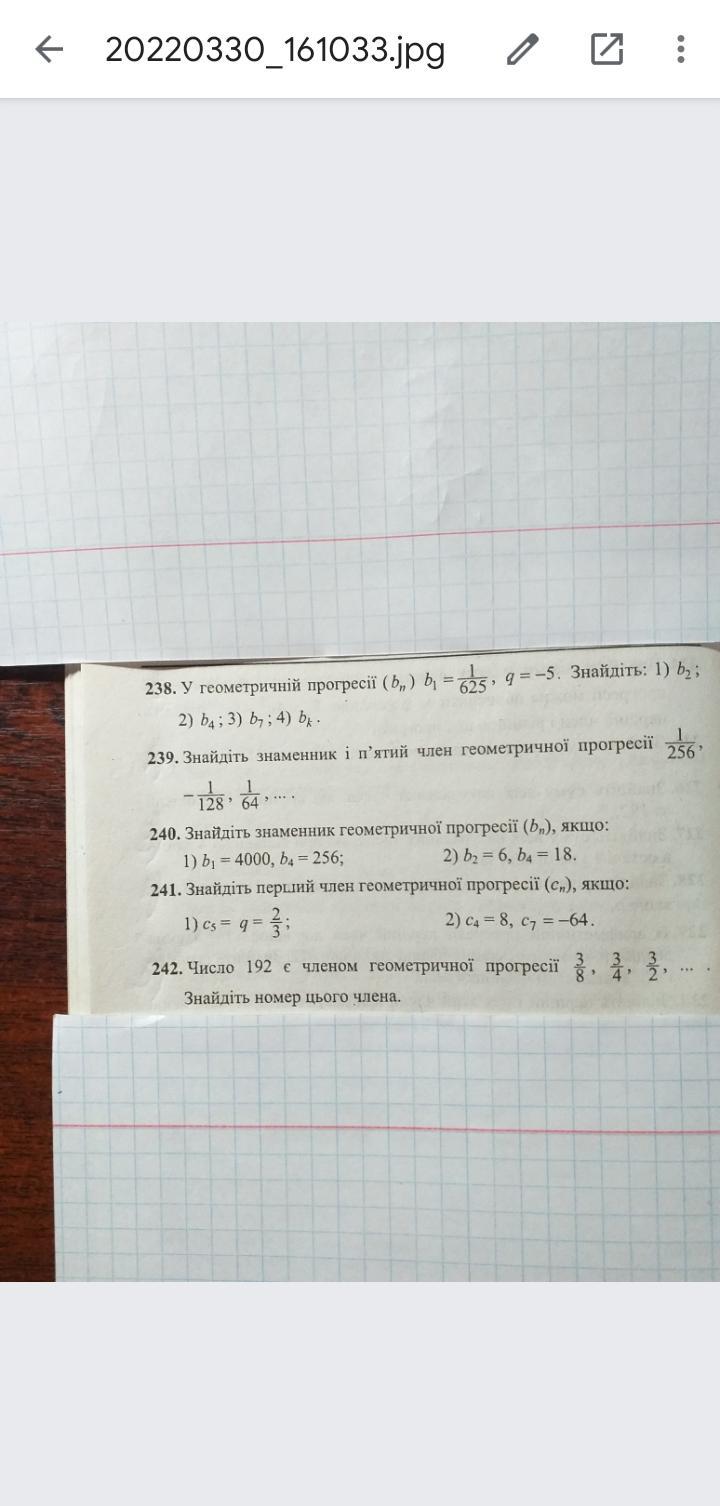 20220330_161033.jpg
238. У геометричній прогресії (bₙ) b₁ = 1/625, q = –5. Знайдіть: 1) b₂;
2) b₄; 3) b₇; 4) bₖ.
239. Знайдіть знаменник і п’ятий член геометричної прогресії 1/256,
–1/128, 1/64, ... .
240. Знайдіть знаменник геометричної прогресії (bₙ), якщо:
1) b₁ = 4000, b₄ = 256; 2) b₂ = 6, b₄ = 18.
241. Знайдіть перший член геометричної прогресії (cₙ), якщо:
1) c₅ = q = 2/3; 2) c₄ = 8, c₇ = –64.
242. Число 192 є членом геометричної прогресії 3/8, 3/4, 3/2, ... .
Знайдіть номер цього члена.